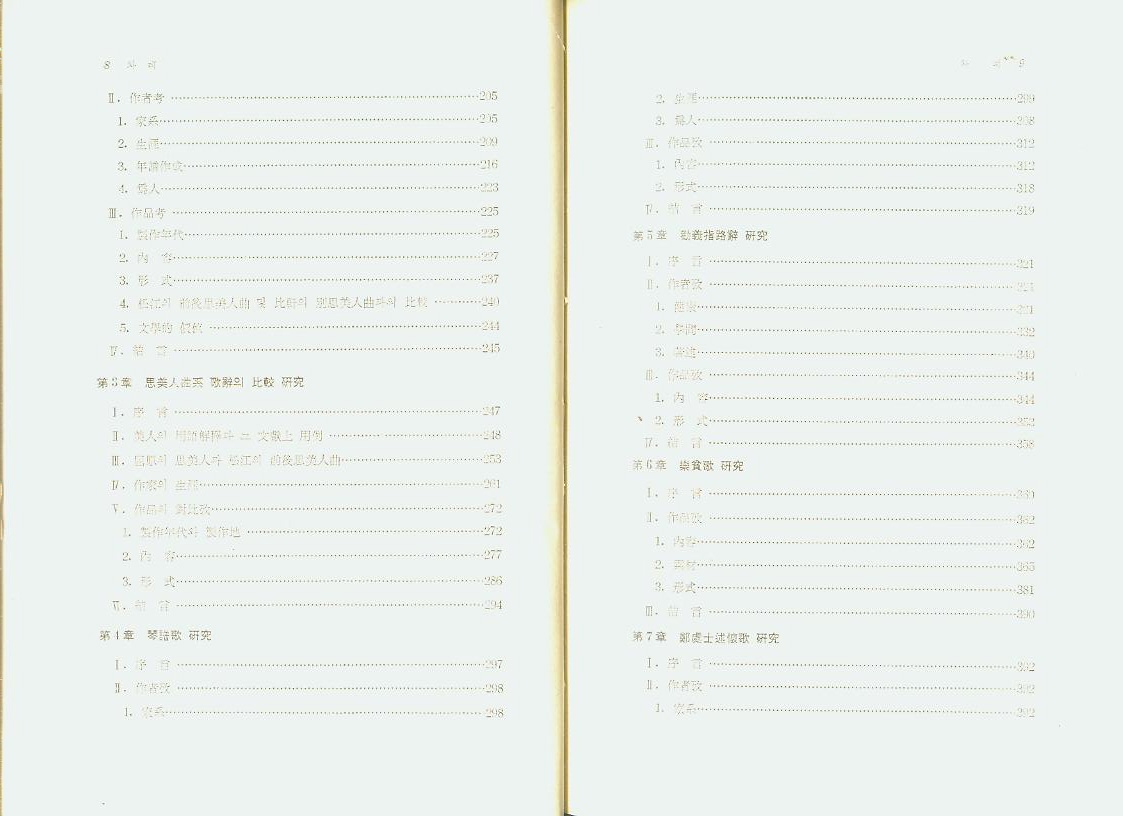 8 차 례
Ⅱ. 作者考 205
1. 家系 205
2. 生涯 209
3. 年譜作成 216
4. 爲人 223
Ⅲ. 作品考 225
1. 製作年代 225
2. 內 容 227
3. 形 式 237
4. 松江의 前後思美人曲 및 比軒의 別思美人曲과의 比較 240
5. 文學的 價値 244
Ⅳ. 結 言 245
第3章 思美人曲系 歌辭의 比較 硏究
Ⅰ. 序 言 247
Ⅱ. 美人의 用語解釋과 그 文獻上 用例 248
Ⅲ. 屈原의 思美人과 松江의 前後思美人曲 253
Ⅳ. 作家의 生涯 261
Ⅴ. 作品의 對比攷 272
1. 製作年代와 製作地 272
2. 內 容 277
3. 形 式 286
Ⅵ. 結 言 294
第4章 琴譜歌 硏究
Ⅰ. 序 言 297
Ⅱ. 作者攷 298
1. 家系 298
차 례 9
2. 生涯 299
3. 爲人 308
Ⅲ. 作品攷 312
1. 內容 312
2. 形式 318
Ⅳ. 結 言 319
第5章 勸義指路辭 硏究
Ⅰ. 序 言 321
Ⅱ. 作者攷 321
1. 321
2. 學問 332
3. 著述 340
Ⅲ. 作品攷 344
1. 內 容 344
2. 形 式 352
Ⅳ. 結 言 358
第6章 樂貧歌 硏究
Ⅰ. 序 言 360
Ⅱ. 作品攷 362
1. 內容 362
2. 素材 365
3. 形式 381
Ⅲ. 結 言 390
第7章 鄭處士述懷歌 硏究
Ⅰ. 序 言 392
Ⅱ. 作者攷 392
1. 家系 392